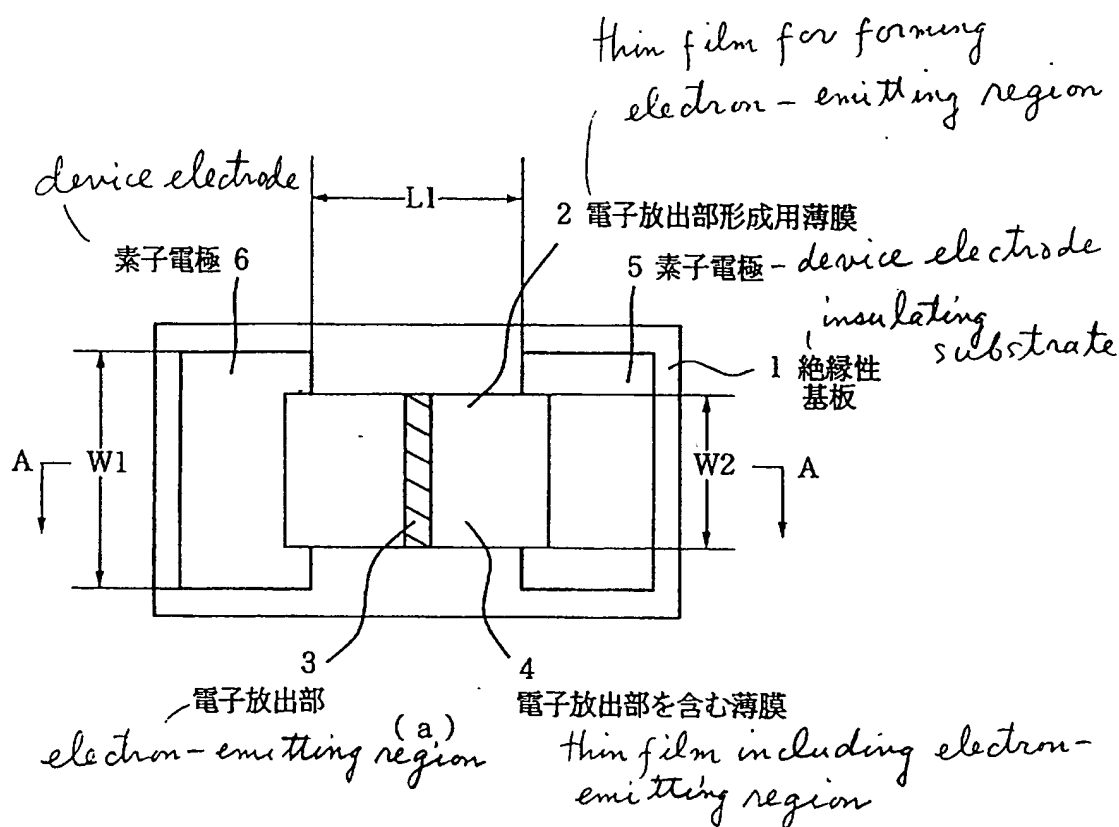 thin film for forming
electron-emitting region
device electrode
L1
2 電子放出部形成用薄膜
素子電極 6
5 素子電極 - device electrode
insulating
substrate
1 絶縁性
基板
A
W1
W2
A
3
電子放出部
4
電子放出部を含む薄膜
(a)
electron-emitting region
thin film including electron-
emitting region